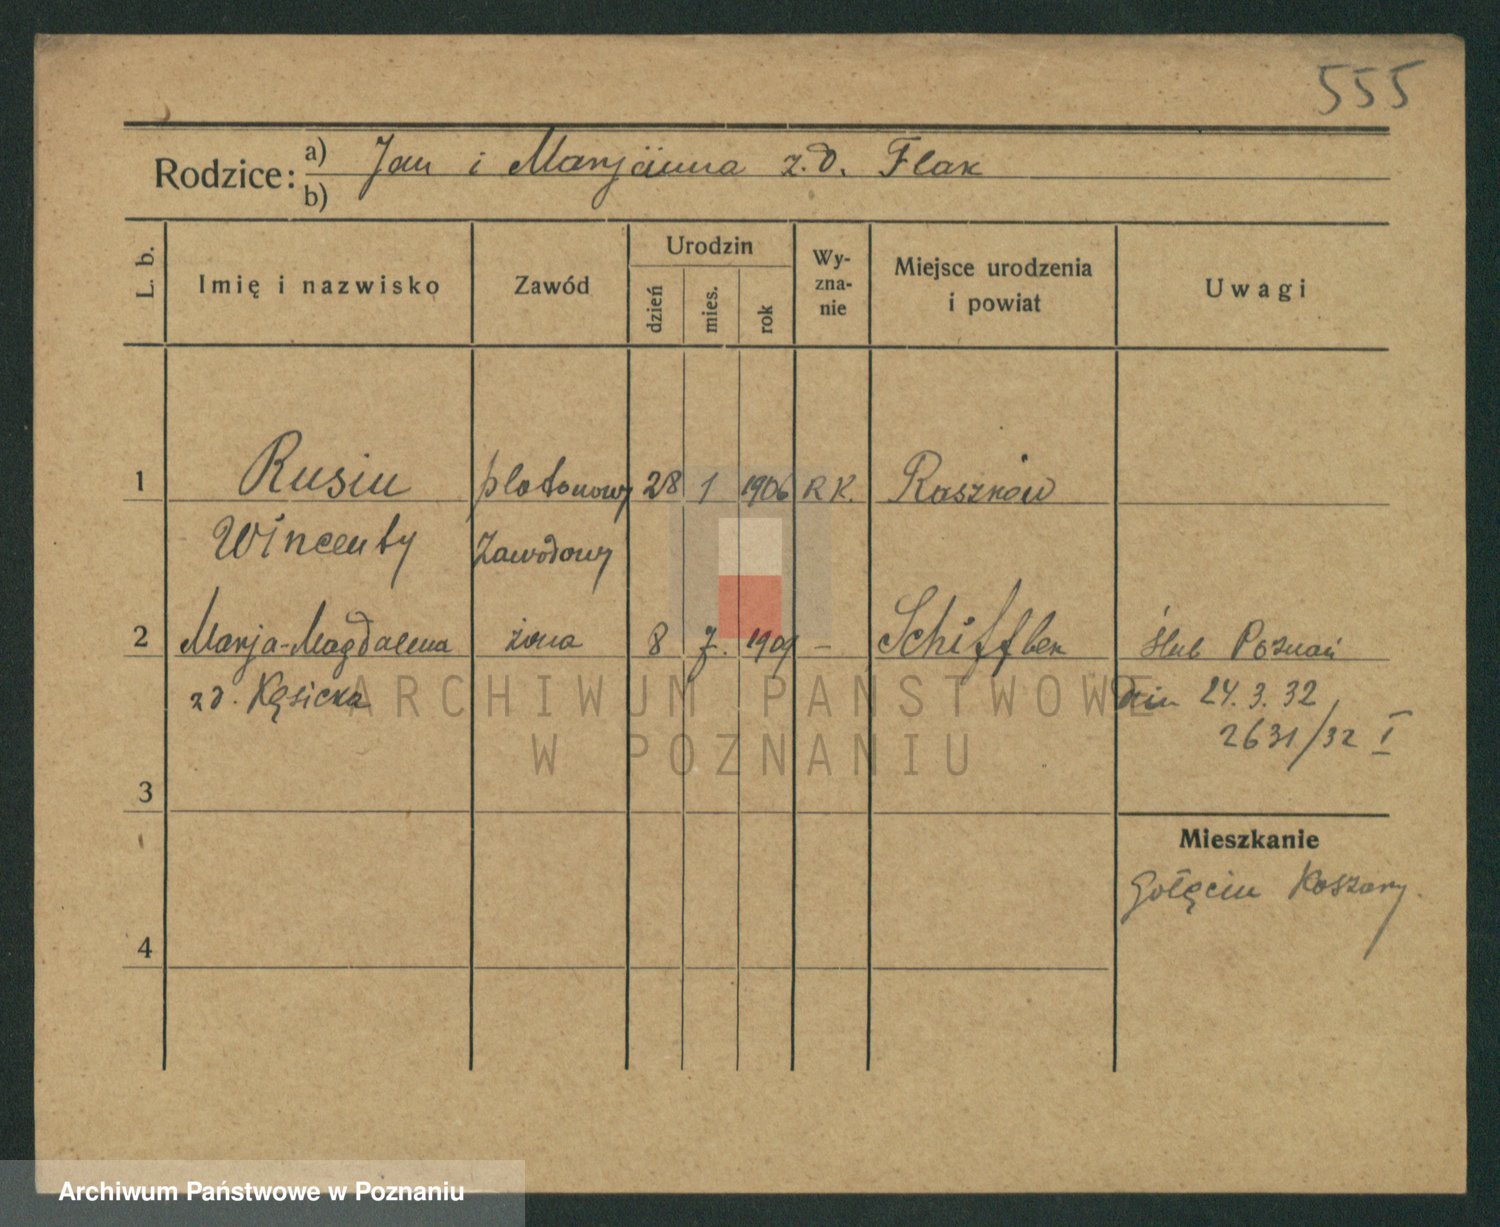 555
Rodzice: a) Jan i Marjanna z.d. Flak
b)
L. b.
Imię i nazwisko
Zawód
Urodzin
dzień
mies.
rok
Wy-
zna-
nie
Miejsce urodzenia
i powiat
Uwagi
1 Rusin plotonowy 28 1 1906 R K. Raszków
Wincenty Zawodowy
2 Marja-Magdalena żona 8 7. 1909 – Schiffbek ślub Poznań
zd. Kęsicka dnia 24.3.32
2631/32 I
3
Mieszkanie
Gołęcin Koszary.
4
ARCHIWUM PAŃSTWOWE
W POZNANIU
Archiwum Państwowe w Poznaniu